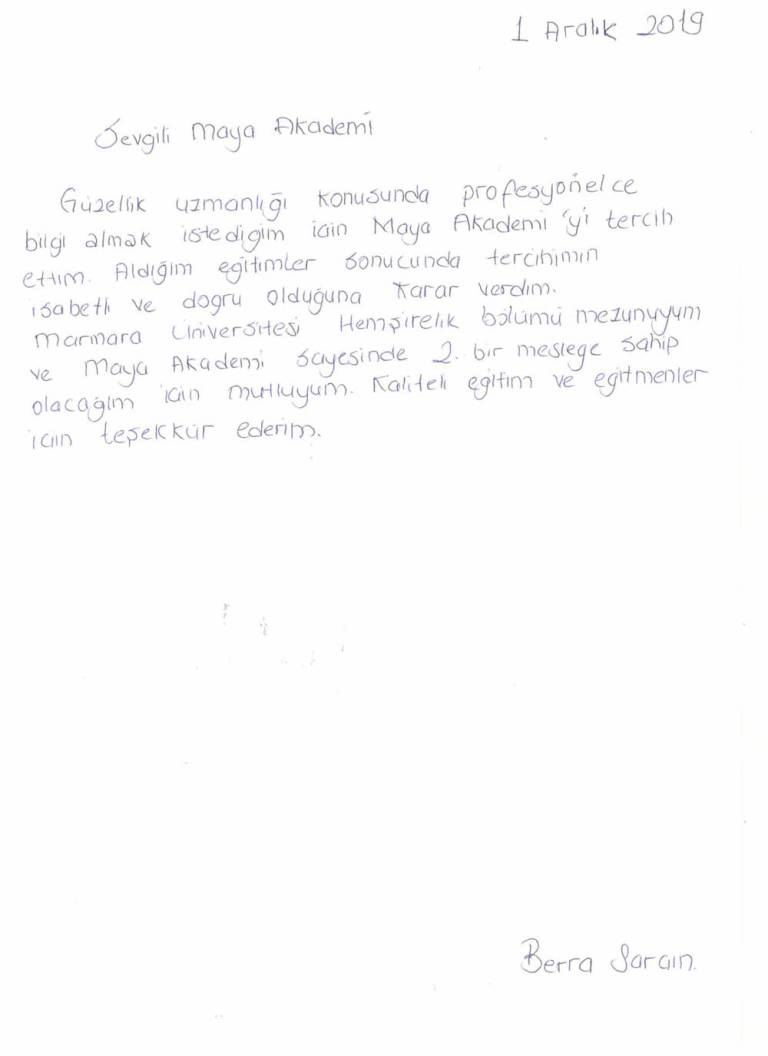 1 Aralık 2019
Sevgili Maya Akademi
Güzellik uzmanlığı konusunda profesyonelce
bilgi almak istediğim için Maya Akademi'yi tercih
ettim. Aldığım eğitimler sonucunda tercihimin
isabetli ve doğru olduğuna karar verdim.
Marmara Üniversitesi Hemşirelik bölümü mezunuyum
ve Maya Akademi sayesinde 2. bir mesleğe sahip
olacağım için mutluyum. Kaliteli eğitim ve eğitmenler
için teşekkür ederim.
Berra